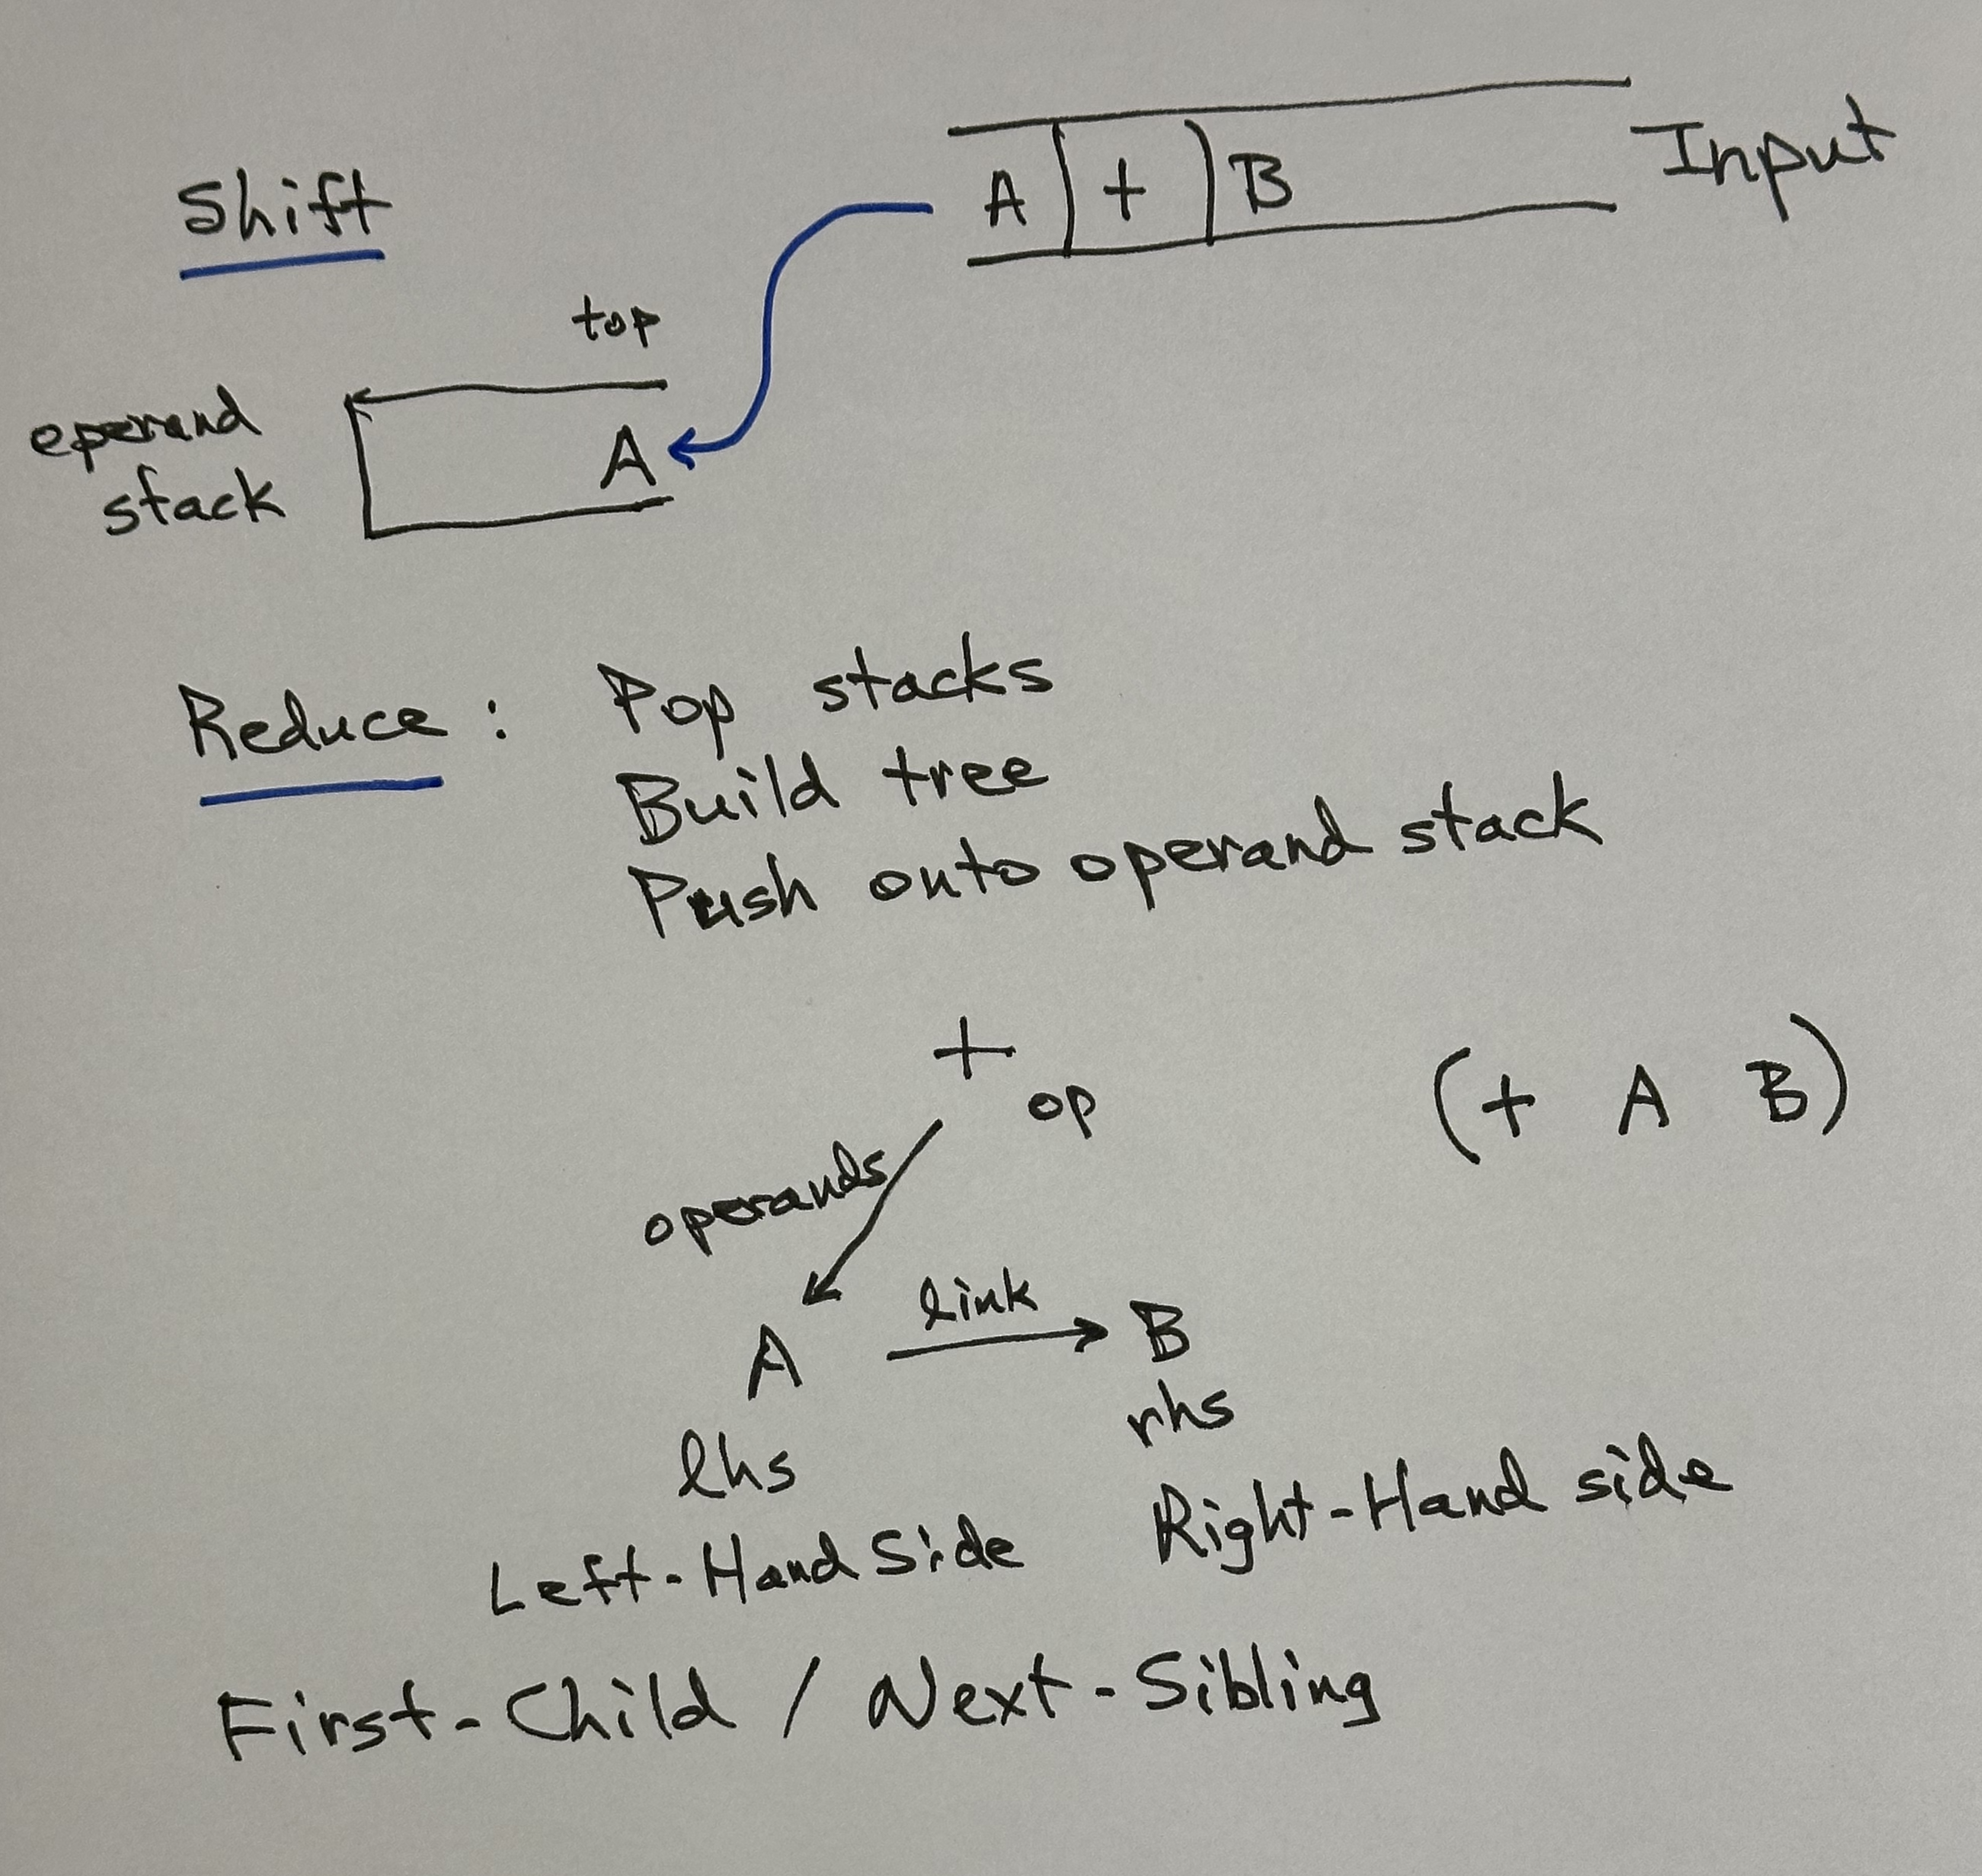 Shift
A + B Input
top
operand
stack
A
Reduce : Pop stacks
Build tree
Push onto operand stack
+
op
(+ A B)
operands
link
A B
lhs rhs
Left-Hand Side Right-Hand side
First-Child / Next-Sibling